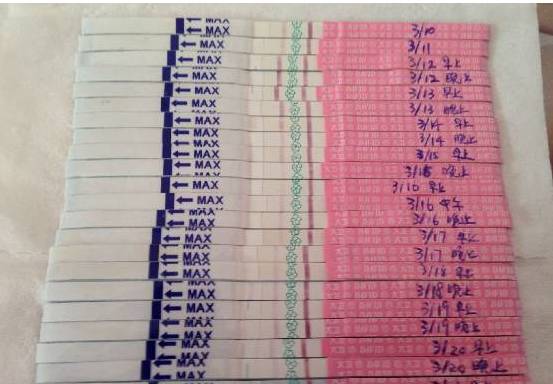 MAX
MAX 3/10
MAX 3/11
MAX 3/12 早上
MAX 3/12 晚上
MAX 3/13 早上
MAX 3/13 晚上
MAX 3/14 早上
MAX 3/14 晚上
MAX 3/15 早上
MAX 3/15 晚上
MAX 3/16 早上
MAX 3/16 中午
MAX 3/16 晚上
MAX 3/17 早上
MAX 3/17 晚上
MAX 3/18 早上
MAX 3/18 晚上
MAX 3/19 早上
MAX 3/19 晚上
MAX 3/20 早上
MAX 3/20 晚上
MAX